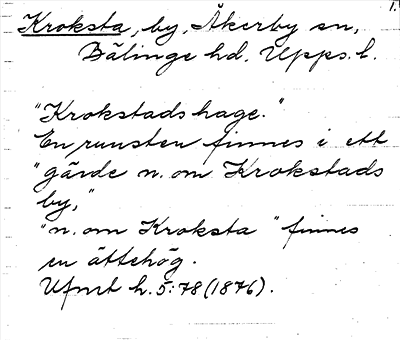 1.
Kroksta, by, Åkerby sn,
Bälinge hd. Upps. l.
"Krokstads hage."
En runsten finnes i ett
"gärde n. om Krokstads
by,"
"n. om Kroksta" finnes
en ättehög.
Ufmt h. 5:78 (1876).